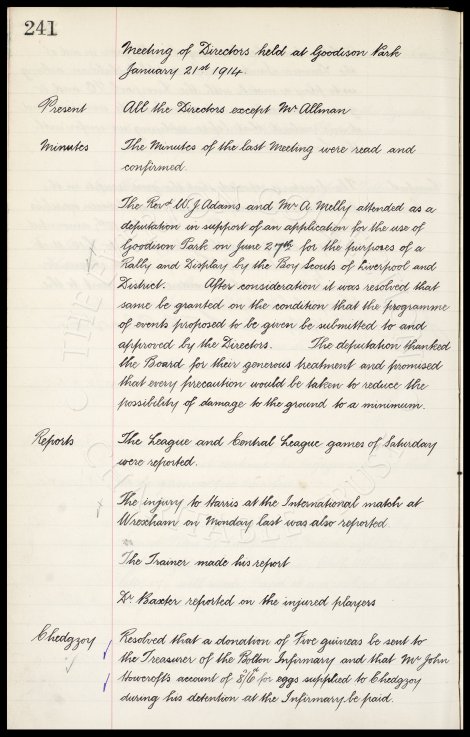 241
Meeting of Directors held at Goodison Park
January 21st 1914
Present All the Directors except Mr Allman
Minutes The Minutes of the last Meeting were read and
confirmed.
The Revd W. J Adams and Mr A. Melly attended as a
deputation in support of an application for the use of
Goodison Park on June 27th for the purposes of a
Rally and Display by the Boy Scouts of Liverpool and
District. After consideration it was resolved that
same be granted on the condition that the programme
of events proposed to be given be submitted to and
approved by the Directors. The deputation thanked
the Board for their generous treatment and promised
that every precaution would be taken to reduce the
possibility of damage to the ground to a minimum.
Reports The League and Central League games of Saturday
were reported.
The injury to Harris at the International match at
Wrexham on Monday last was also reported
The Trainer made his report
Dr Baxter reported on the injured players
Chedgzoy Resolved that a donation of Five guineas be sent to
the Treasurer of the Bolton Infirmary and that Mr John
Howcroft's account of 8/6d for eggs supplied to Chedgzoy
during his detention at the Infirmary be paid.